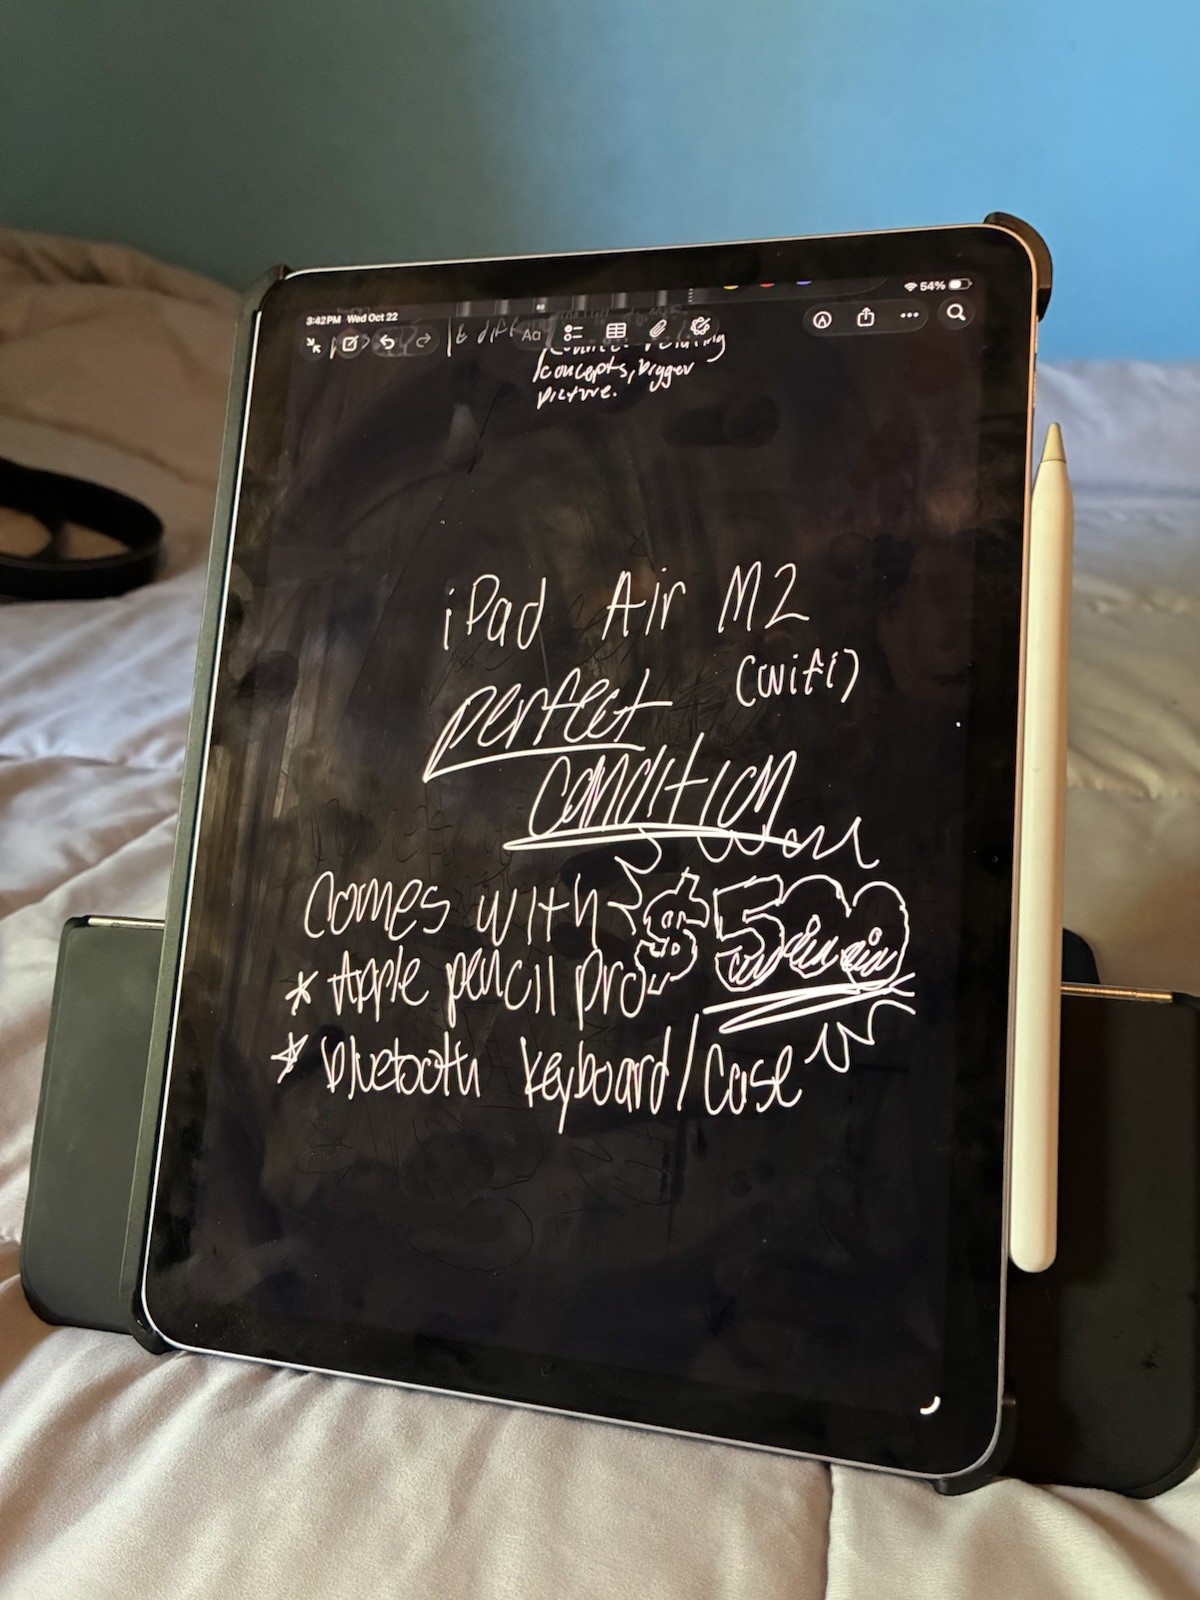 3:42 PM Wed Oct 22
54%
Aa
concepts, bigger
picture.
iPad Air M2
(wifi)
perfect
condition
comes with
$500
* Apple pencil pro
* bluetooth keyboard/case